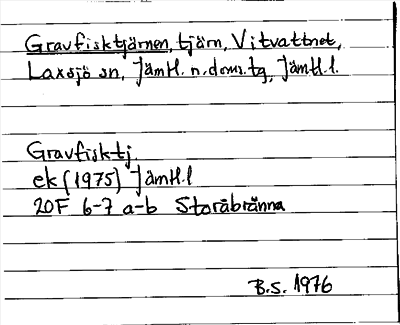 Gravfisktjärnen, tjärn, Vitvattnet,
Laxsjö sn, Jämtl. n. doms. tg, Jämtl. l.
Gravfisktj.
ek (1975) Jämtl. l
20F 6-7 a-b Storåbränna
B.S. 1976